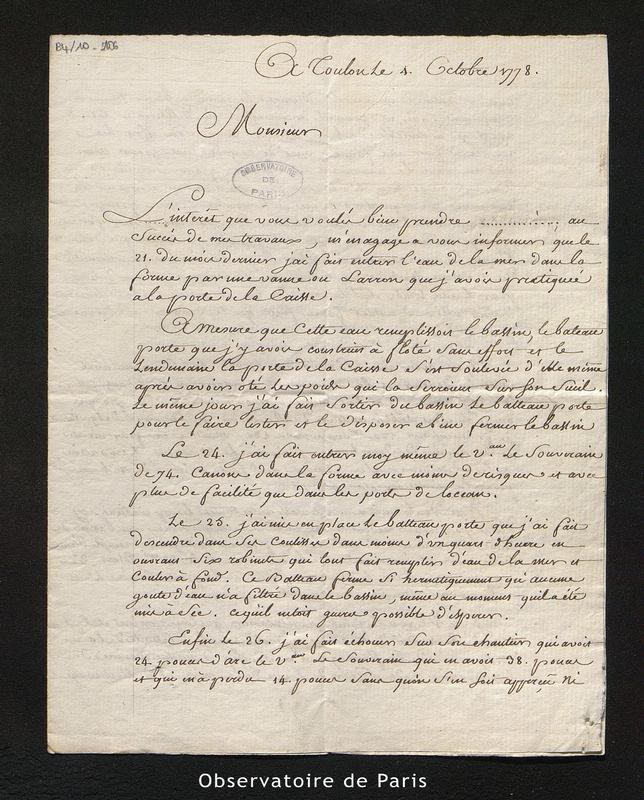 B4/10-
A Toulon le 1. Octobre 1778.
Monsieur
OBSERVATOIRE
DE
PARIS
L'interêt que vous voulés bien prendre au
Succès de mes travaux, m'engage a vous informer que le
21. du mois dernier j'ai fait entrer l'eau de la mer dans la
forme par une vanne ou Larron que j'avois pratiquée
a la porte de la Caisse.
A mesure que Cette eau remplissoit le bassin, le bateau
porte que j'y avois construit à floté Sans effort et le
Lendemain la porte de la Caisse s'est Soulevée d'elle même
après avoir oté Les poids qui la Serroient Sur Son Seuil.
Le même jour j'ai fait Sortir du bassin Le batteau porte
pour le faire lester et le disposer a bien fermer le bassin
Le 24. j'ai fait entrer moy même le V.au Le Souverain
de 74. Canons dans la forme avec moins de risques et avec
plus de facilité que dans les ports de l'ocean.
Le 25. j'ai mis en place Le batteau porte que j'ai fait
descendre dans Ses Coulisses dans moins d'un quart d'heure en
ouvrant Six robinets qui l'ont fait remplir d'eau de la mer et
Couler à fond. Ce Batteau ferme Si hermetiquement qu'aucune
goute d'eau n'a filtré dans le bassin, même au moment qu'il a été
mis à Sec. ce qu'il n'etoit guere possible d'esperer.
Enfin le 26. j'ai fait échouer Sur Son chantier qui avoit
24. pouces d'arc le V.au Le Souverain qui en avoit 38. pouces
et qui en a perdu 14. pouces Sans qu'on S'en Soit apperçu Ni
Observatoire de Paris